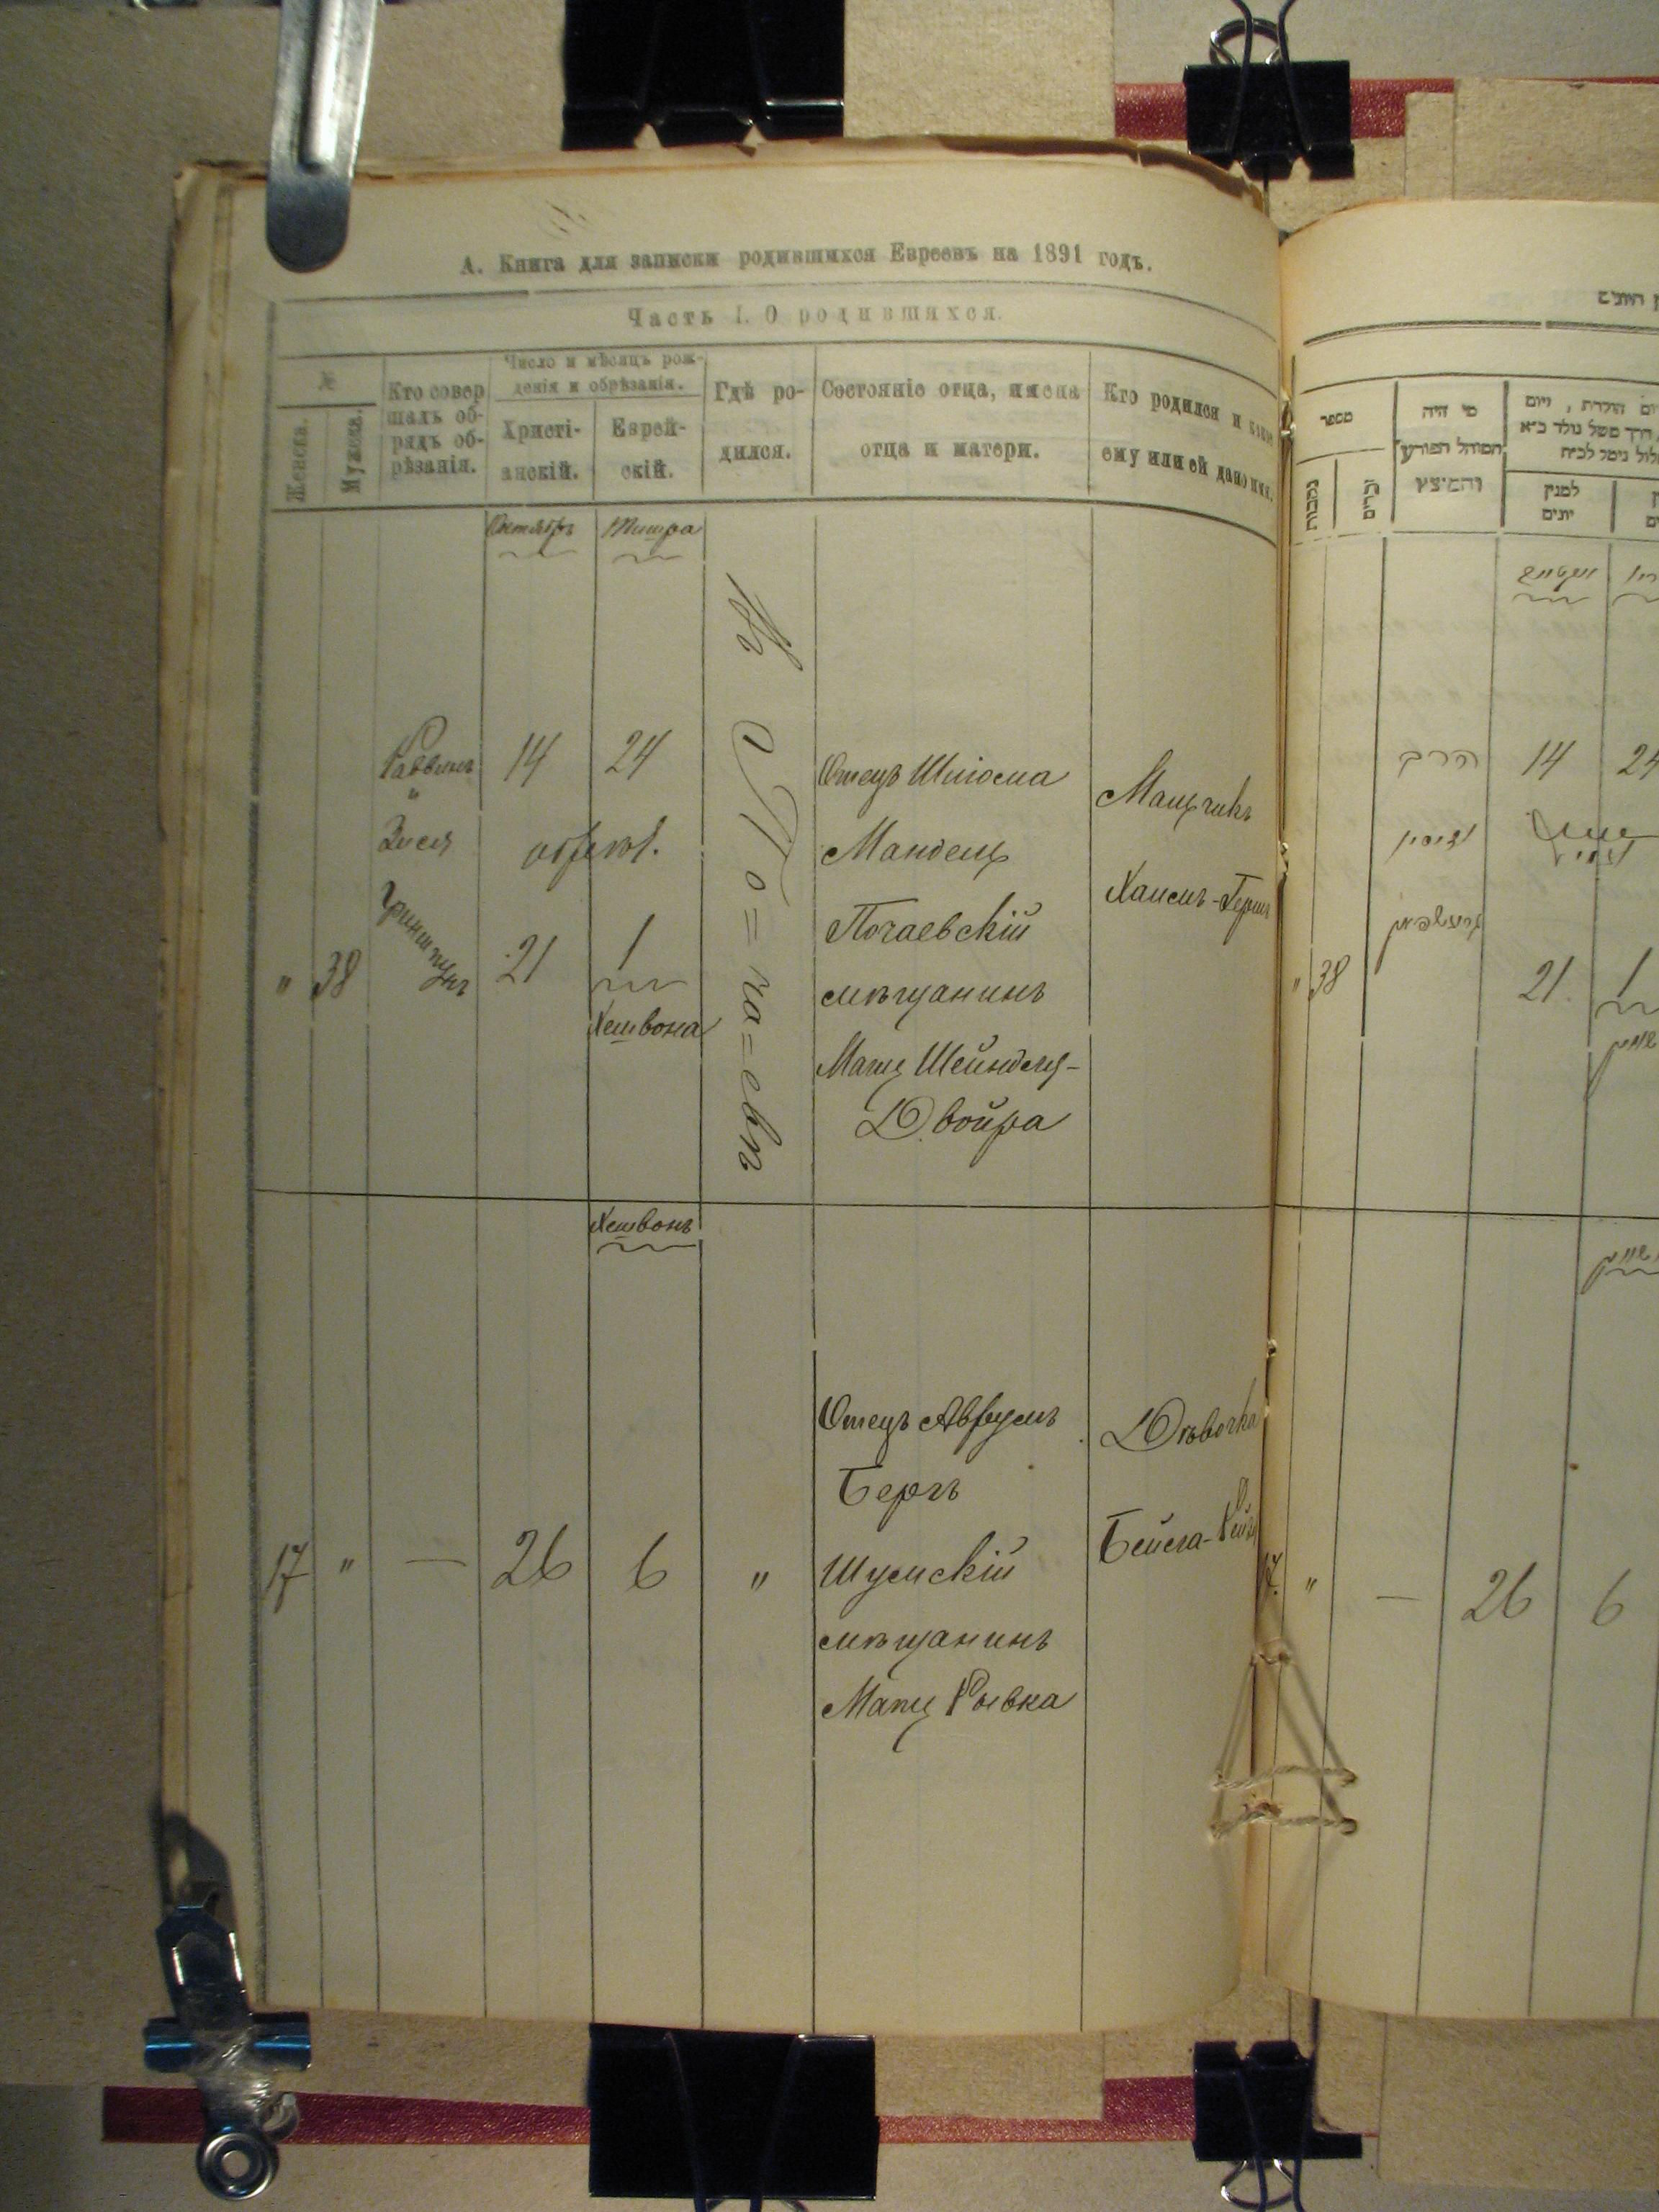 А. Книга для записки родившихся Евреевъ на 1891 годъ.
Часть I. О родившихся.
№
Женска.
Мужска.
Кто совер
шалъ об-
рядъ об-
рѣзанія.
Число и мѣсяцъ рож-
денія и обрѣзанія.
Христі-
анскій.
Еврей-
скій.
Гдѣ ро-
дился.
Состояніе отца, имена
отца и матери.
Кто родился и какое
ему или ей дано имя.
Октябрь
Тишра
" 38
Раввинъ
"
Зися
Гриншпунъ
14
24
обрѣз.
21
1
Хешвона
Въ М. По=ча=евѣ
Отецъ Шліома
Мандель
Почаевскій
мѣщанинъ
Мать Шейндля-
Двойра
Мальчикъ
Хаимъ-Гершъ
Хешвонъ
17 " — 26 6 "
Отецъ Аврумъ
Бергъ
Шумскій
мѣщанинъ
Мать Ривка
Дѣвочка
Бейла-
מספר
נקבות
זכרים
מי היה
המוהל הפורע
והמוצץ
למנין
יונים
הרב
14
24
" 38
21
1
17 " — 26 6